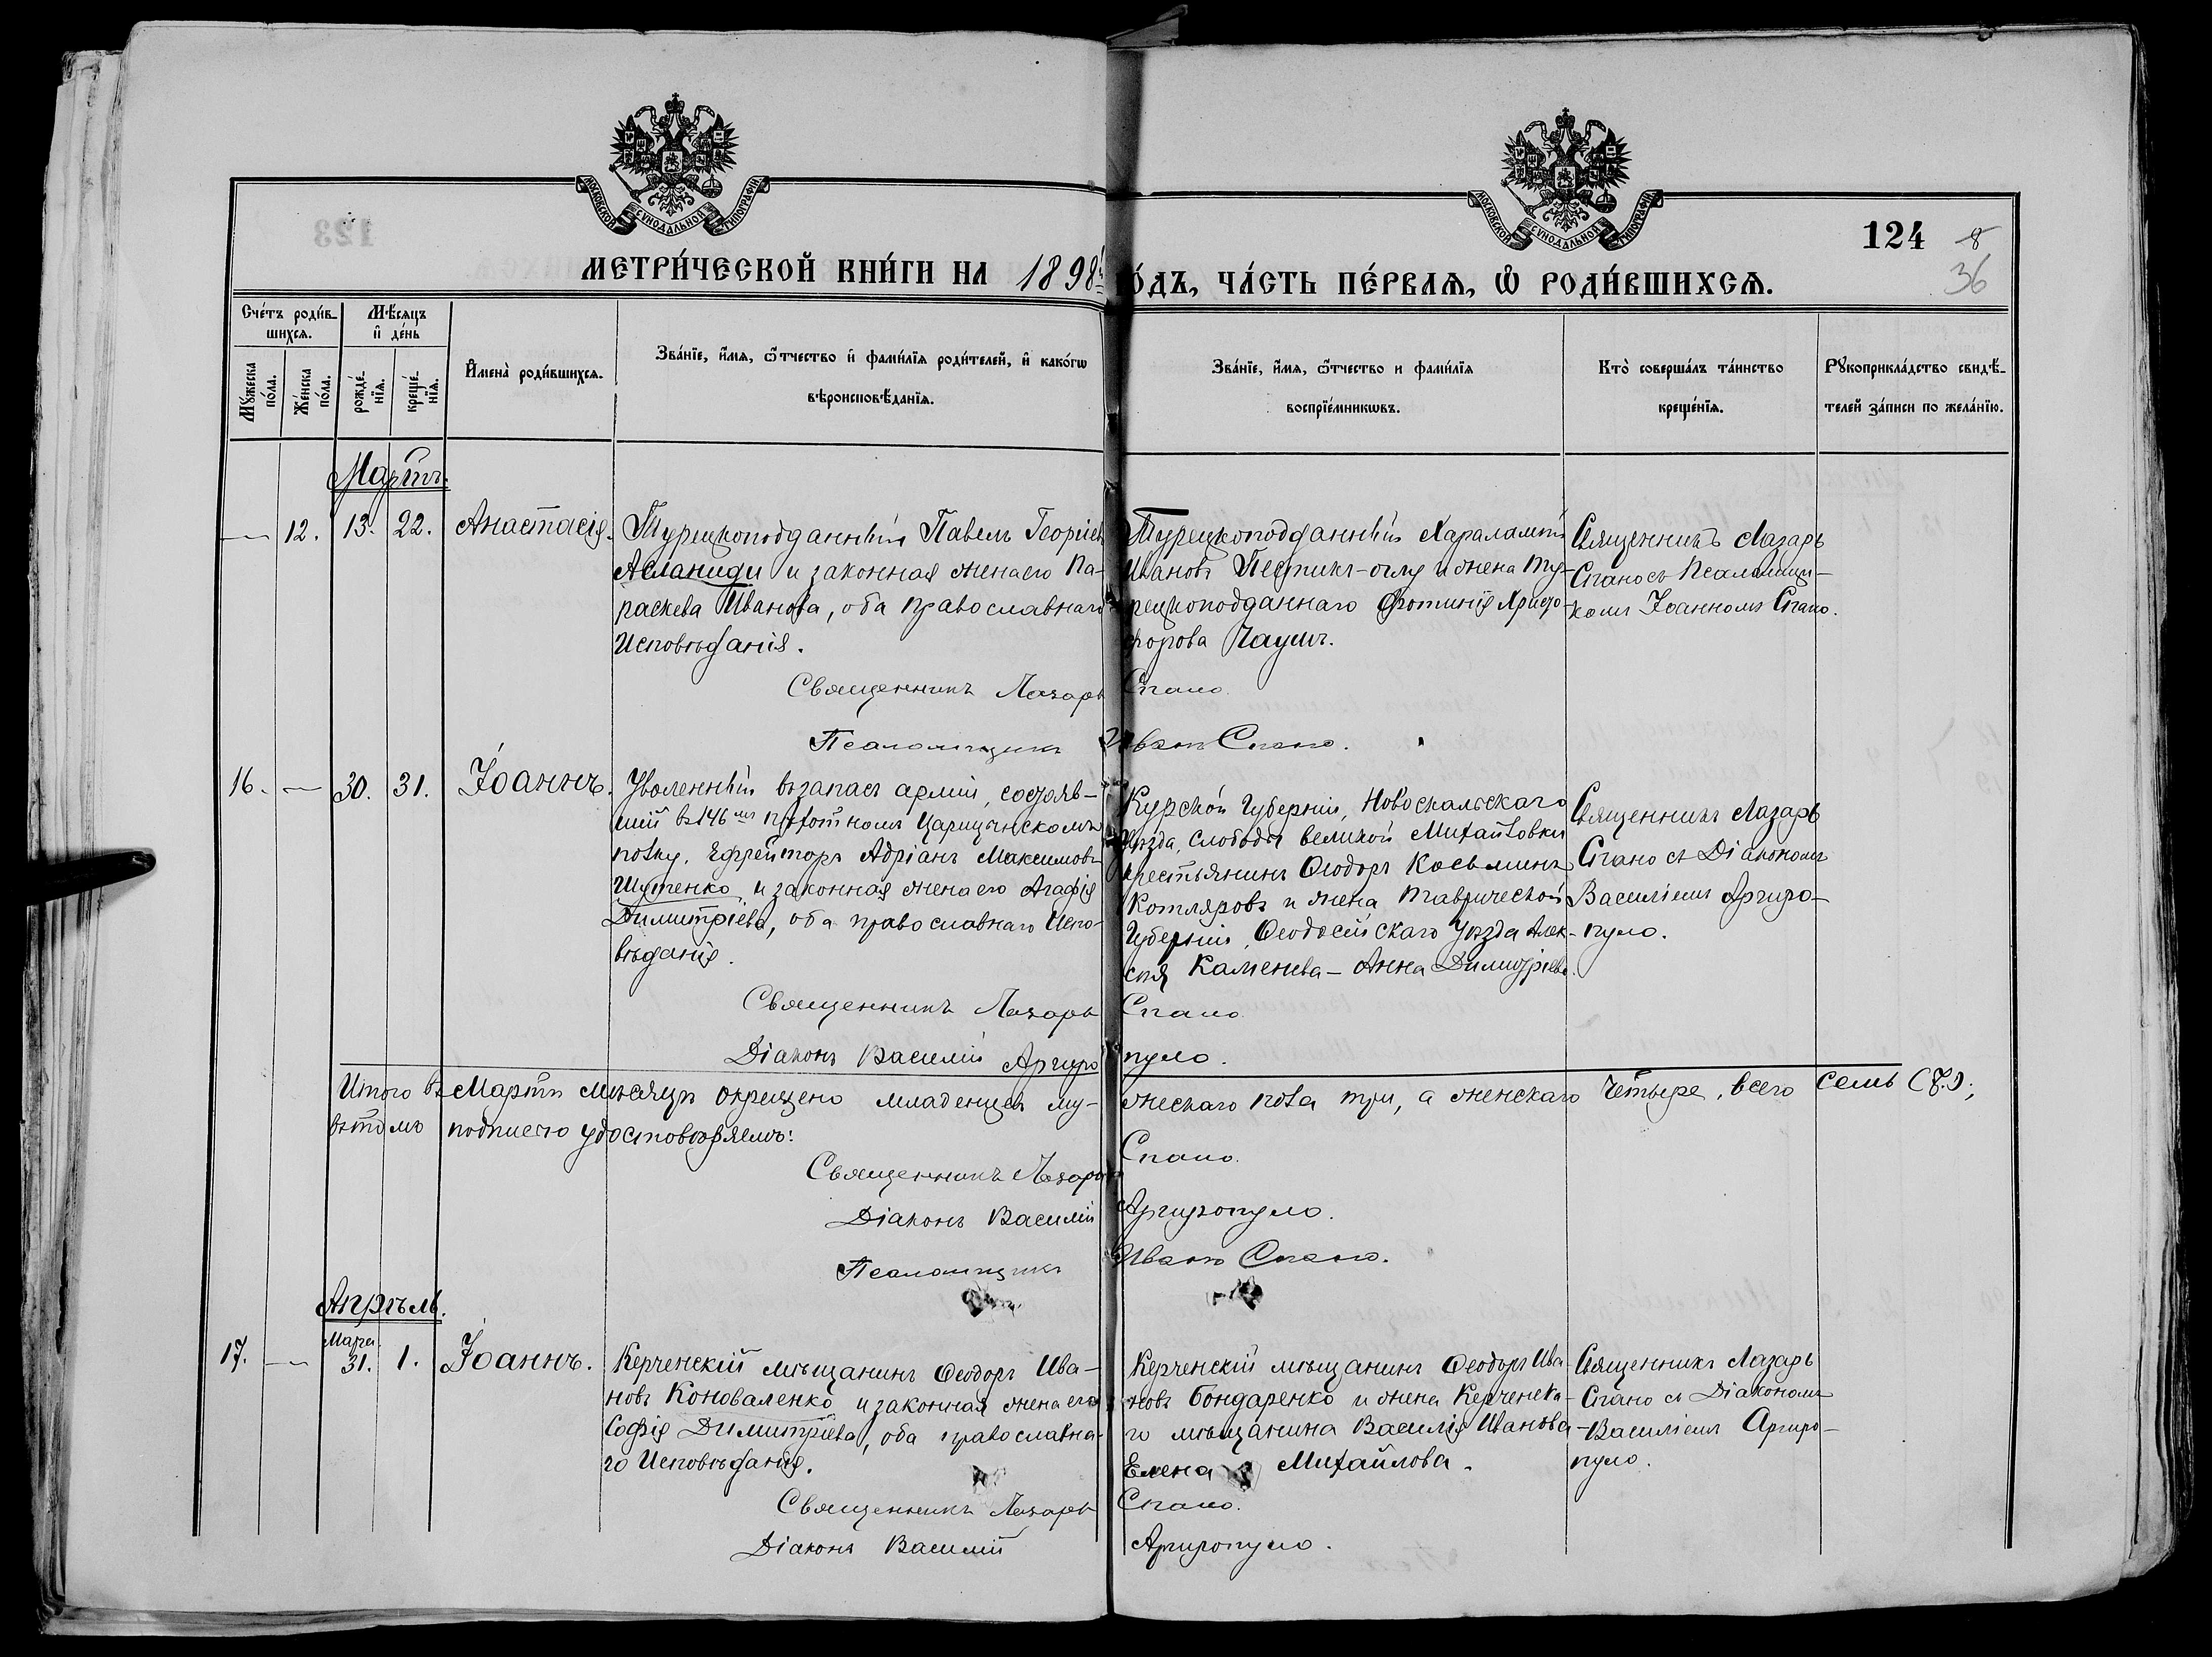 МОСКОВСКОЙ СУНОДАЛЬНОЙ ТИПОГРАФІИ
МОСКОВСКОЙ СУНОДАЛЬНОЙ ТИПОГРАФІИ
124 8
36
МЕТРИ́ЧЕСКОЙ КНИ́ГИ НА 1898й
О́ДЪ, ЧА́СТЬ ПЕ́РВАЯ, Ѡ҆ РОДИ́ВШИХСЯ.
Сче́тъ роди́в-
шихся.
Му́жеска
по́ла.
Же́нска
по́ла.
Мѣ́сяцъ
и҆ де́нь
рожде́-
нїя.
креще́-
нїя.
И҆мена̀ роди́вшихся.
Зва́нїе, и҆́мя, ѻ҆́тчество и҆ фами́лїя роди́телей, и҆ како́гѡ
вѣроисповѣ́данїя.
Зва́нїе, и҆́мя, ѻ҆́тчество и фами́лїя
воспрїе́мникѡвъ.
Кто̀ соверша́лъ та́инство
креще́нїя.
Рꙋкоприкла́дство свидѣ́-
телей за́писи по жела́нїю.
Мартъ.
— 12. 13. 22. Анастасія.
Турецкоподданный Павелъ Георгіев
Асланиди и законная жена его Па-
раскева Иванова, оба православнаго
Исповѣданія.
Турецкоподданный Харалампій
Ивановъ Пестикъ-оглу и жена Ту-
рецкоподданнаго Фотинія Христо-
форова Чаушъ.
Священникъ Лазарь
Спано съ Псаломщи-
комъ Іоанномъ Спано.
Священникъ Лазарь Спано
Псаломщикъ Иванъ Спано.
16. — 30. 31. Іоаннъ.
Уволенный въ запасъ арміи, состояв-
шій въ 146мъ пѣхотномъ Царицынскомъ
полку, Ефрейторъ Адріанъ Максимовъ
Шутенко и законная жена его Агафія
Димитріева, оба православнаго Испо-
вѣданія.
Курской Губерніи, Новоскальскаго
Уѣзда, Слободы Великой Михайловки
крестьянинъ Ѳеодоръ Косьминъ
Котляровъ и жена Таврической
Губерніи, Ѳеодосійскаго Уѣзда Алек-
сѣя Каменева – Анна Димитріева.
Священникъ Лазарь
Спано съ Діакономъ
Василіемъ Аргиро-
пуло.
Священникъ Лазарь Спано
Діаконъ Василій Аргиропуло.
Итого въ Мартѣ мѣсяцѣ окрещено младенцевъ му- жескаго пола три, а женскаго четыре, всего семь (7.);
въ томъ подписью удостовѣряемъ:
Священникъ Лазарь Спано.
Діаконъ Василій Аргиропуло.
Псаломщикъ Иванъ Спано.
Апрѣль.
17. — Марта 31. 1. Іоаннъ.
Керченскій мѣщанинъ Ѳеодоръ Ива-
новъ Коноваленко и законная жена его
Софія Димитріева, оба православна-
го Исповѣданія.
Керченскій мѣщанинъ Ѳеодоръ Ива-
новъ Бондаренко и жена Керченска-
го мѣщанина Василія Иванова –
Елена Михайлова.
Священникъ Лазарь
Спано съ Діакономъ
Василіемъ Аргиро-
пуло.
Священникъ Лазарь Спано.
Діаконъ Василій Аргиропуло.